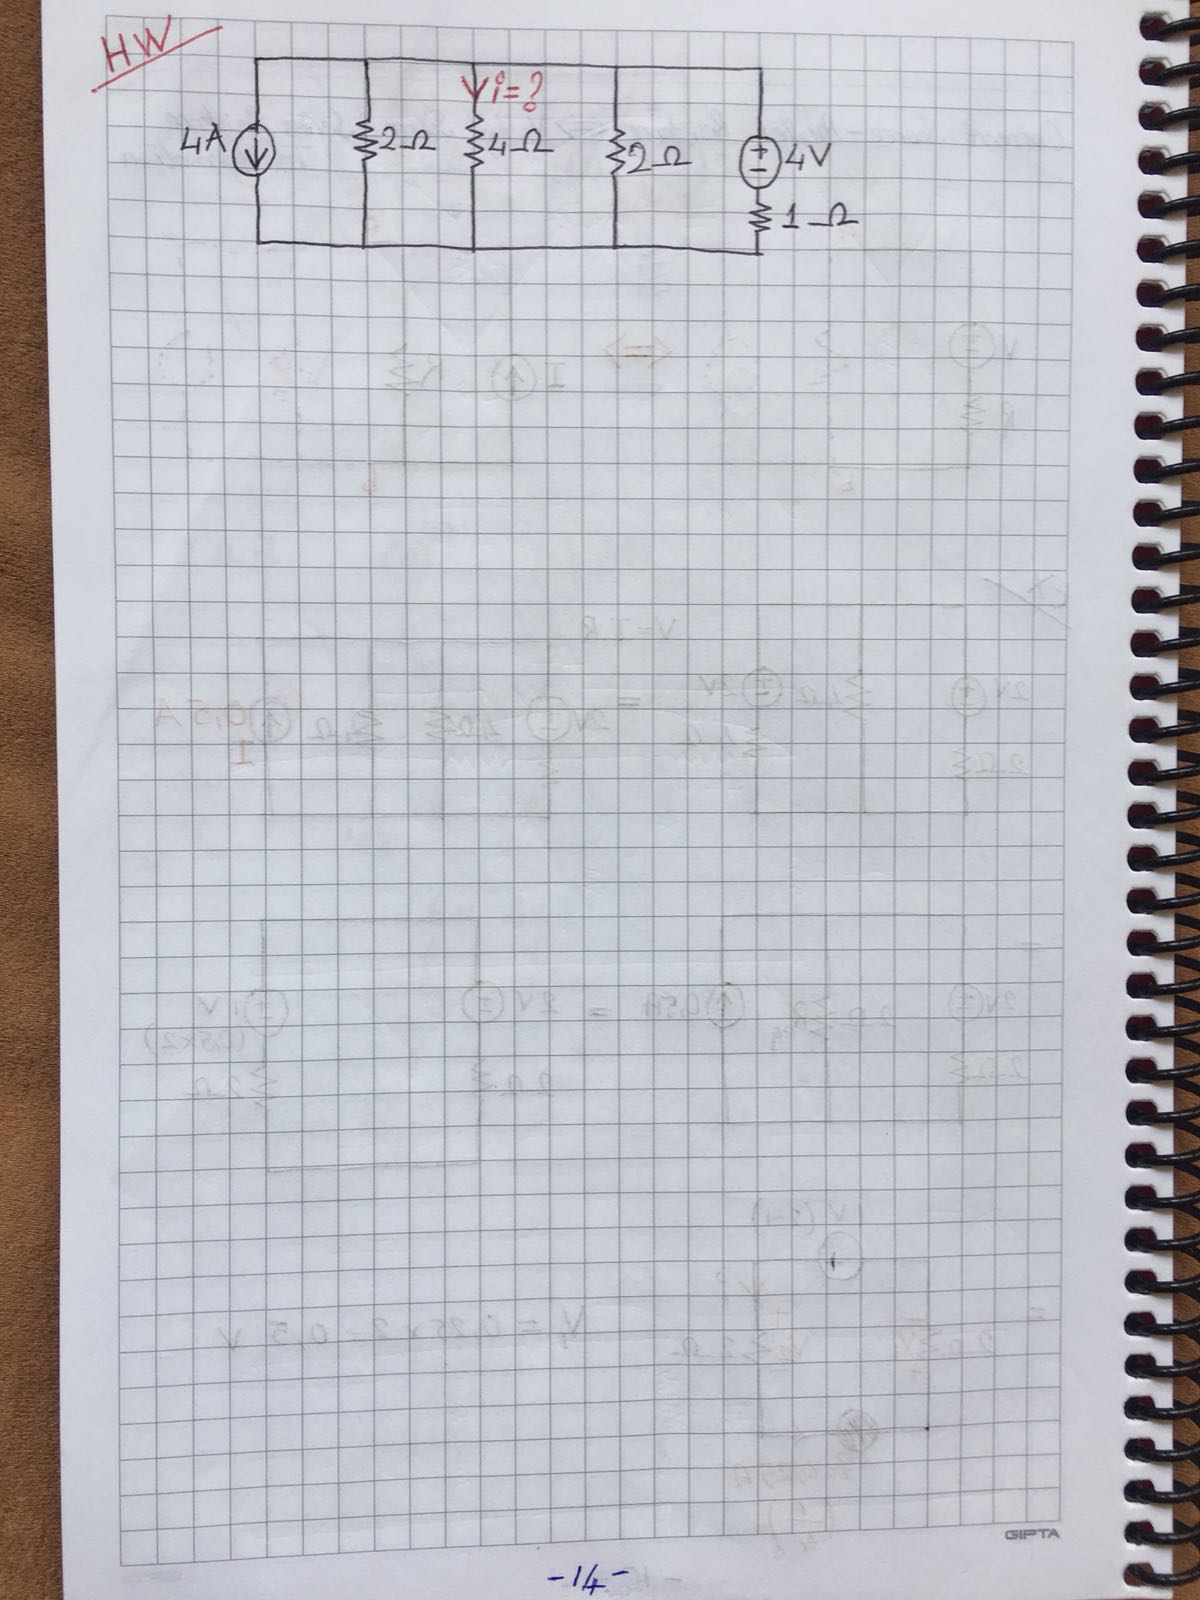 HW
i=?
4A 2Ω 4Ω 2Ω + - 4V
1Ω
GIPTA
-14-